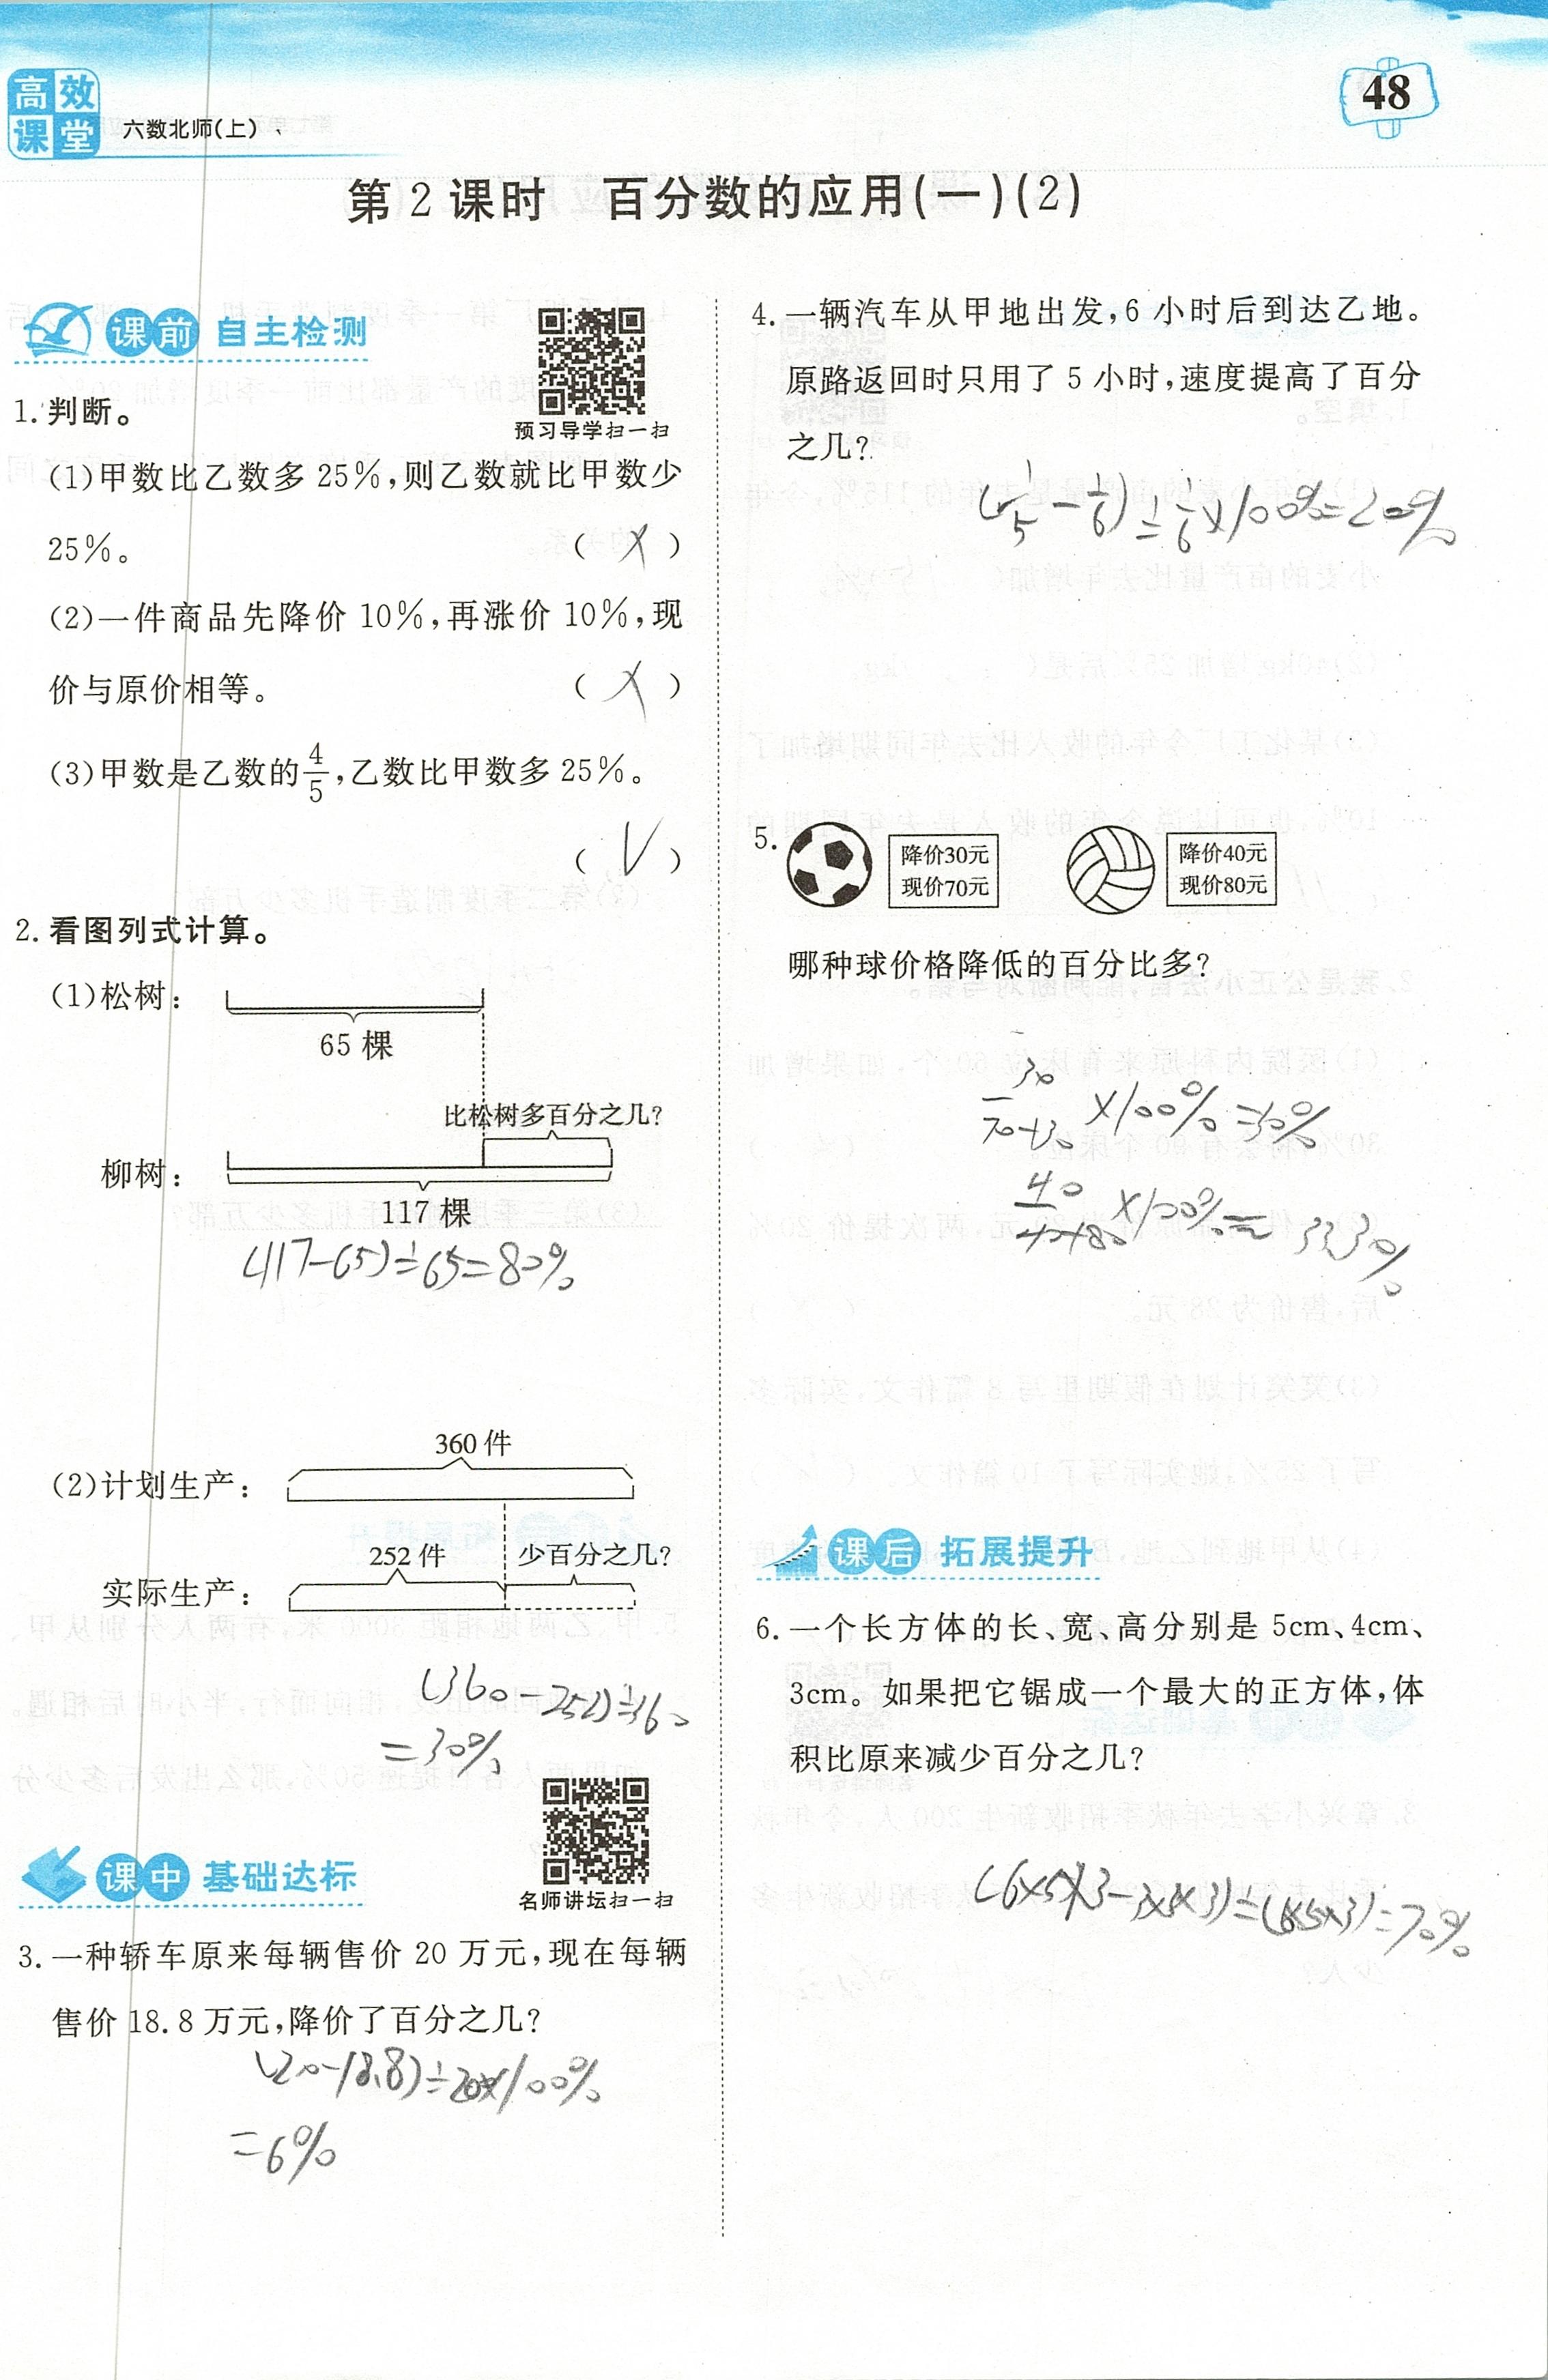 高效课堂
六数北师(上)
48
第2课时 百分数的应用(一)(2)
课前 自主检测
预习导学扫一扫
1.判断。
(1)甲数比乙数多25%,则乙数就比甲数少
25%。 ( X )
(2)一件商品先降价10%,再涨价10%,现
价与原价相等。 ( X )
(3)甲数是乙数的4/5,乙数比甲数多25%。
( √ )
2.看图列式计算。
(1)松树:
65棵
比松树多百分之几?
柳树:
117棵
(117-65)÷65=80%
360件
(2)计划生产:
252件 少百分之几?
实际生产:
(360-252)÷360
=30%
名师讲坛扫一扫
课中 基础达标
3.一种轿车原来每辆售价20万元,现在每辆
售价18.8万元,降价了百分之几?
(20-18.8)÷20×100%
=6%
4.一辆汽车从甲地出发,6小时后到达乙地。
原路返回时只用了5小时,速度提高了百分
之几?
(1/5-1/6)÷1/6×100%=20%
5.
降价30元
现价70元
降价40元
现价80元
哪种球价格降低的百分比多?
30/(70+30)×100%=30%
40/(40+80)×100%≈33.3%
课后 拓展提升
6.一个长方体的长、宽、高分别是5cm、4cm、
3cm。如果把它锯成一个最大的正方体,体
积比原来减少百分之几?
(6×5×3-3×3×3)÷(6×5×3)=70%